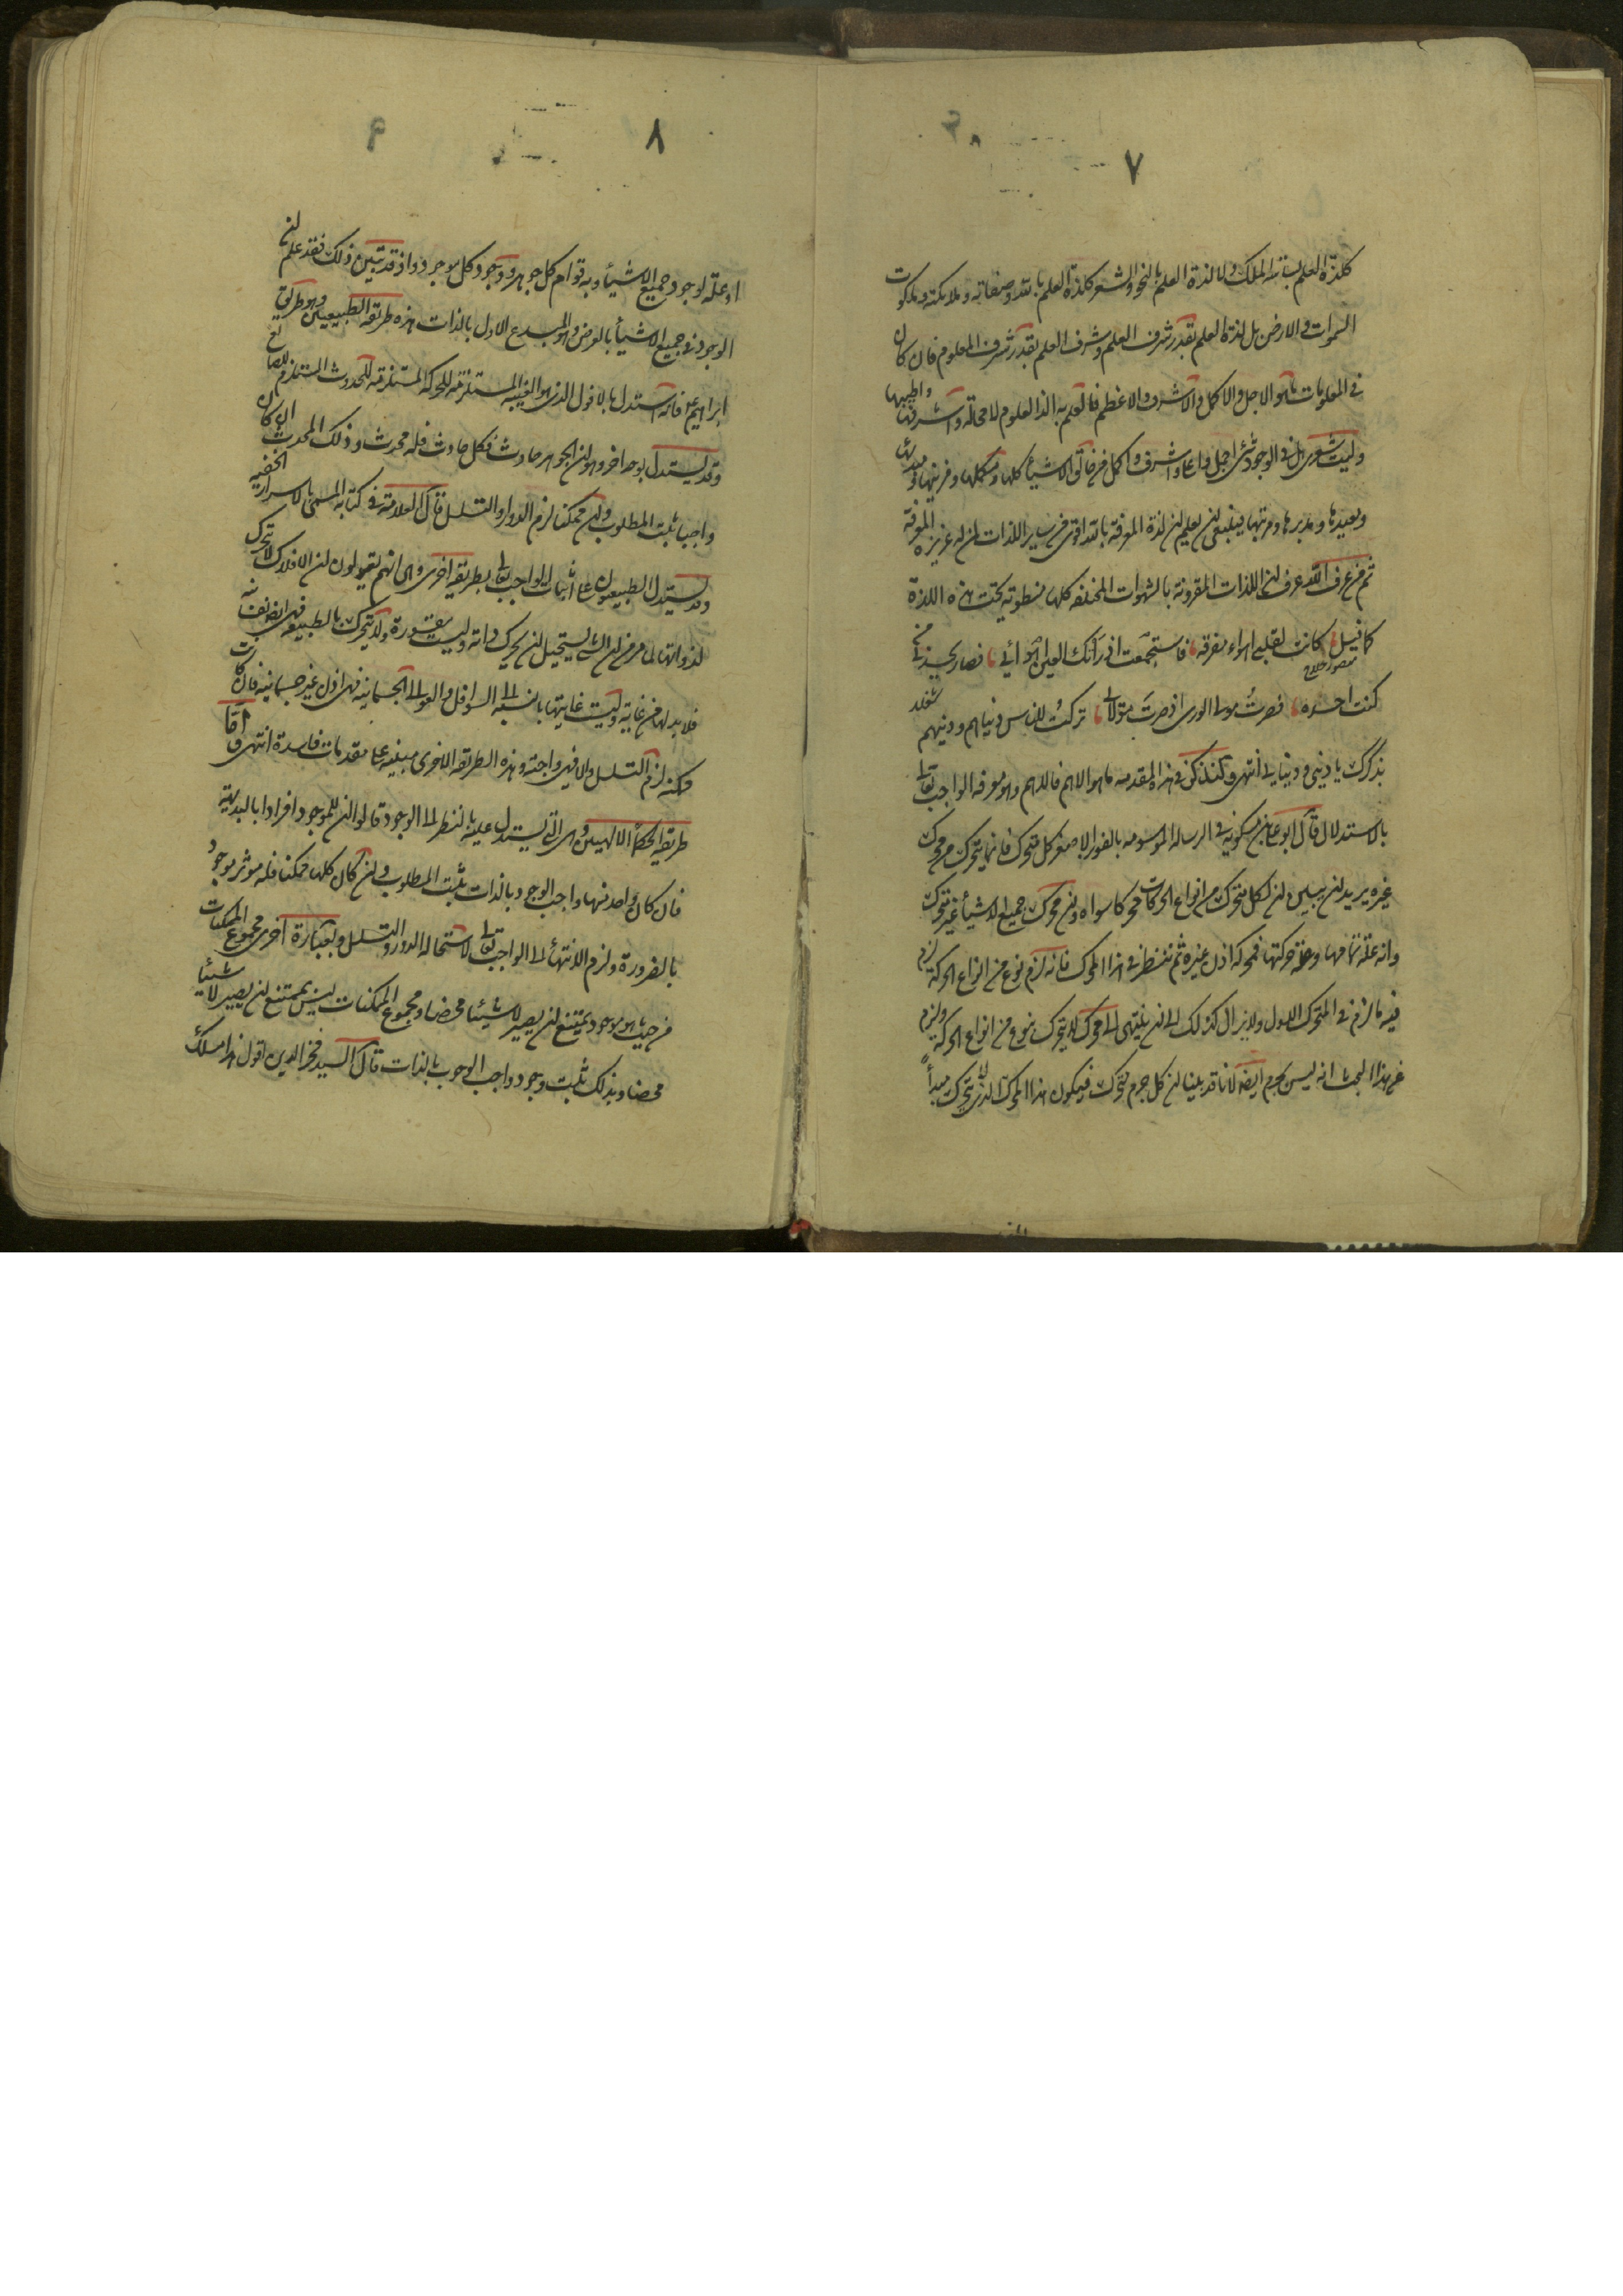 ٧
كلذة العلم بسياسة الملك ولا لذة العلم بالنحو والشعر كلذة العلم بالله وصفاته وملائكته وملكوت
السموات والارض بل لذة العلم بقدر شرف العلم وشرف العلم بقدر شرف المعلوم فان كان
في المعلومات ما هو الاجل والاكمل والاشرف والاعظم فالعلم به الذ العلوم لا محالة واشرفها واطيبها
وليت شعري هل في الوجود شئ اجل واعلى واشرف واكمل من خالق الاشياء كلها ومكملها ومزينها ومبديها
ومعيدها ومدبرها ومرتبها فينبغي ان يعلم ان لذة المعرفة بالله اقوى من ساير اللذات لمن له غريزة المعرفة
ثم من عرف الله عرف ان اللذات المقرونة بالشهوات المختلفة كلها منطوية تحت هذه اللذة
كما قيل كانت لقلبي اهواء مفرقة فاستجمعت اذ رأتك العين اهوائي فصار يحسدني من
منصور حلاج
كنت احسده فصرت مولى الورى اذ صرت مولائي تركت للناس دنياهم ودينهم شغلا
بذكرك يا ديني ودنيايي انتهى ولنذكر في هذا المقدمه ما هو الاهم فالاهم وهو معرفة الواجب تعالى
بالاستدلال قال ابو علي بن مسكويه في الرسالة الموسومه بالفوز الاصغر كل متحرك فانما يتحرك من محرك
غيره يريد ان يبين ان لكل متحرك من انواع الحركات محركا سواه وان محرك جميع الاشياء غير متحرك
وانه علة تمامها وعلة حركتها فمحركه اذن غيره ثم ننظر في هذا المحرك فانه لزم نوع من انواع الحركة لزم
فيه ما لزم في المتحرك الاول ولا يزال كذلك الى ان ينتهي الى محرك لا يتحرك بنوع من انواع الحركة ولزم
من هذا البحث انه ليس بجرم ايضا لانا قد بينا ان كل جرم متحرك فيكون هذا المحرك الذي لا يتحرك مبدأ
٨
او علة لوجود جميع الاشياء وبه قوام كل جوهر ووجود كل موجود واذ قد تبين ذلك فقد علم ان
الوجود في جميع الاشياء بالعرض وهو للمبدع الاول بالذات هذه طريقة الطبيعيين وهو طريق
ابراهيم ع فانه استدل بالافول الذي هو الغيبة المستلزمة للحركة المستلزمة للحدوث المستلزم للصانع
وقد يستدل بوجه اخر وهو ان الجوهر حادث فكل حادث فله محدث وذلك المحدث ان كان
واجبا ثبت المطلوب وان ممكنا لزم الدور او التسلسل قال العلامة في كتابه المسمى بالاسرار الخفية
وقد يستدل الطبيعيون على اثبات الواجب تعالى بطريقة اخرى وهي انهم يقولون ان الافلاك لا تتحرك
لذواتها لما مر من ان الشئ يستحيل ان يحرك ذاته وليست بقسورة ولا تتحرك بالطبيعة فهي اذن نفسانية
فلا بد لها من غاية وليست غايتها بالنسبة الى السوافل والعوالي الجسمانية فهي اذن غير جسمانية فان كانت
ممكنة لزم التسلسل والا فهي واجبة وهذه الطريقة الاخرى مبنية على مقدمات فاسدة انتهى واما
طريقة الحكماء الالهيين وهي التي يستدل عليه بالنظر الى الوجود قالوا ان للموجود افرادا بالبديهة
فان كان واحد منها واجب الوجود بالذات ثبت المطلوب وان كان كلها ممكنا فله مؤثر موجود
بالضرورة ولزم الانتهاء الى الواجب تعالى لاستحالة الدور والتسلسل وبعبارة اخرى مجموع الممكنات
من حيث هو موجود يمتنع ان يصير لا شيئا محضا ومجموع الممكنات ليس يمتنع ان يصير لا شيئا
محضا وبذلك ثبت وجود واجب الوجود بالذات قال السيد فخر الدين اقول هذا مسلك